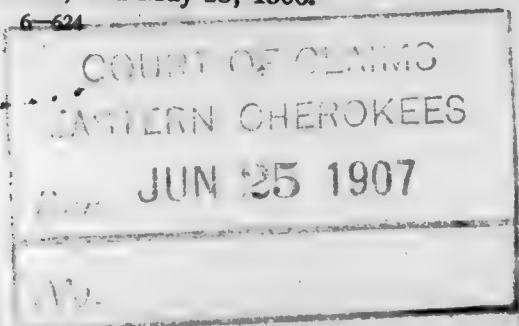 6—624
COURT OF CLAIMS
EASTERN CHEROKEES
JUN 25 1907
No.